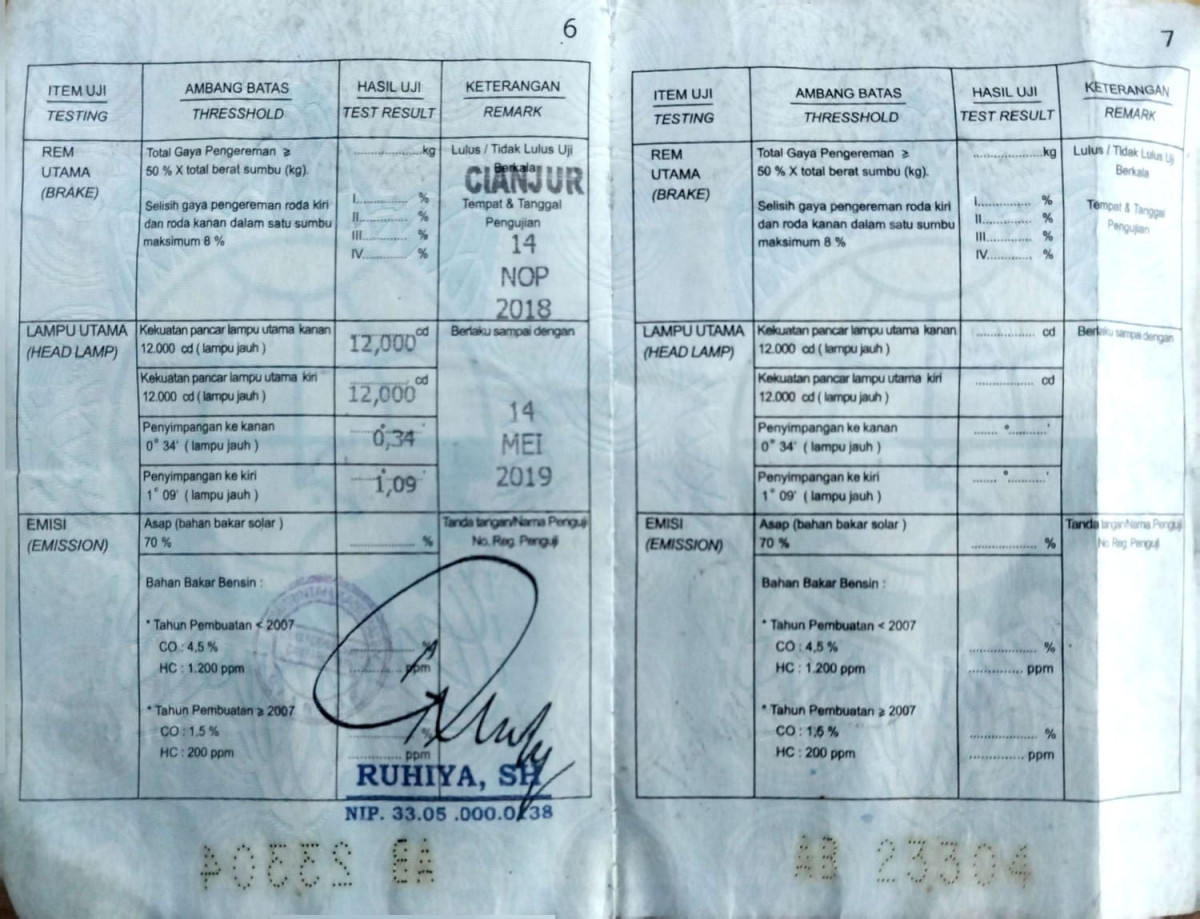 6
ITEM UJI
TESTING
AMBANG BATAS
THRESSHOLD
HASIL UJI
TEST RESULT
KETERANGAN
REMARK
REM
UTAMA
(BRAKE)
Total Gaya Pengereman ≥
50 % X total berat sumbu (kg).
Selisih gaya pengereman roda kiri
dan roda kanan dalam satu sumbu
maksimum 8 %
....................kg
I............... %
II.............. %
III............. %
IV............. %
Lulus / Tidak Lulus Uji
Berkala
CIANJUR
Tempat & Tanggal
Pengujian
14
NOP
2018
LAMPU UTAMA
(HEAD LAMP)
Kekuatan pancar lampu utama kanan
12.000 cd ( lampu jauh )
12,000 cd
Kekuatan pancar lampu utama kiri
12.000 cd ( lampu jauh )
12,000 cd
Penyimpangan ke kanan
0° 34' ( lampu jauh )
0,34
Penyimpangan ke kiri
1° 09' ( lampu jauh )
1,09
Berlaku sampai dengan
14
MEI
2019
EMISI
(EMISSION)
Asap (bahan bakar solar )
70 %
.................. %
Bahan Bakar Bensin :
* Tahun Pembuatan < 2007
CO : 4,5 %
HC : 1.200 ppm
%
ppm
* Tahun Pembuatan ≥ 2007
CO : 1,5 %
HC : 200 ppm
%
ppm
Tanda tangan/Nama Penguji
No. Reg. Penguji
RUHIYA, SH
NIP. 33.05 .000.0138
7
ITEM UJI
TESTING
AMBANG BATAS
THRESSHOLD
HASIL UJI
TEST RESULT
KETERANGAN
REMARK
REM
UTAMA
(BRAKE)
Total Gaya Pengereman ≥
50 % X total berat sumbu (kg).
Selisih gaya pengereman roda kiri
dan roda kanan dalam satu sumbu
maksimum 8 %
....................kg
I............... %
II.............. %
III............. %
IV............. %
Lulus / Tidak Lulus Uji
Berkala
Tempat & Tanggal
Pengujian
LAMPU UTAMA
(HEAD LAMP)
Kekuatan pancar lampu utama kanan
12.000 cd ( lampu jauh )
................. cd
Kekuatan pancar lampu utama kiri
12.000 cd ( lampu jauh )
................. cd
Penyimpangan ke kanan
0° 34' ( lampu jauh )
....... ° ..........'
Penyimpangan ke kiri
1° 09' ( lampu jauh )
....... ° ..........'
Berlaku sampai dengan
EMISI
(EMISSION)
Asap (bahan bakar solar )
70 %
.................. %
Bahan Bakar Bensin :
* Tahun Pembuatan < 2007
CO : 4,5 %
HC : 1.200 ppm
.................. %
............... ppm
* Tahun Pembuatan ≥ 2007
CO : 1,5 %
HC : 200 ppm
.................. %
............... ppm
Tanda tangan/Nama Penguji
No. Reg. Penguji
AB 23304